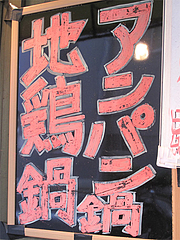 アンパン鍋
地鶏鍋